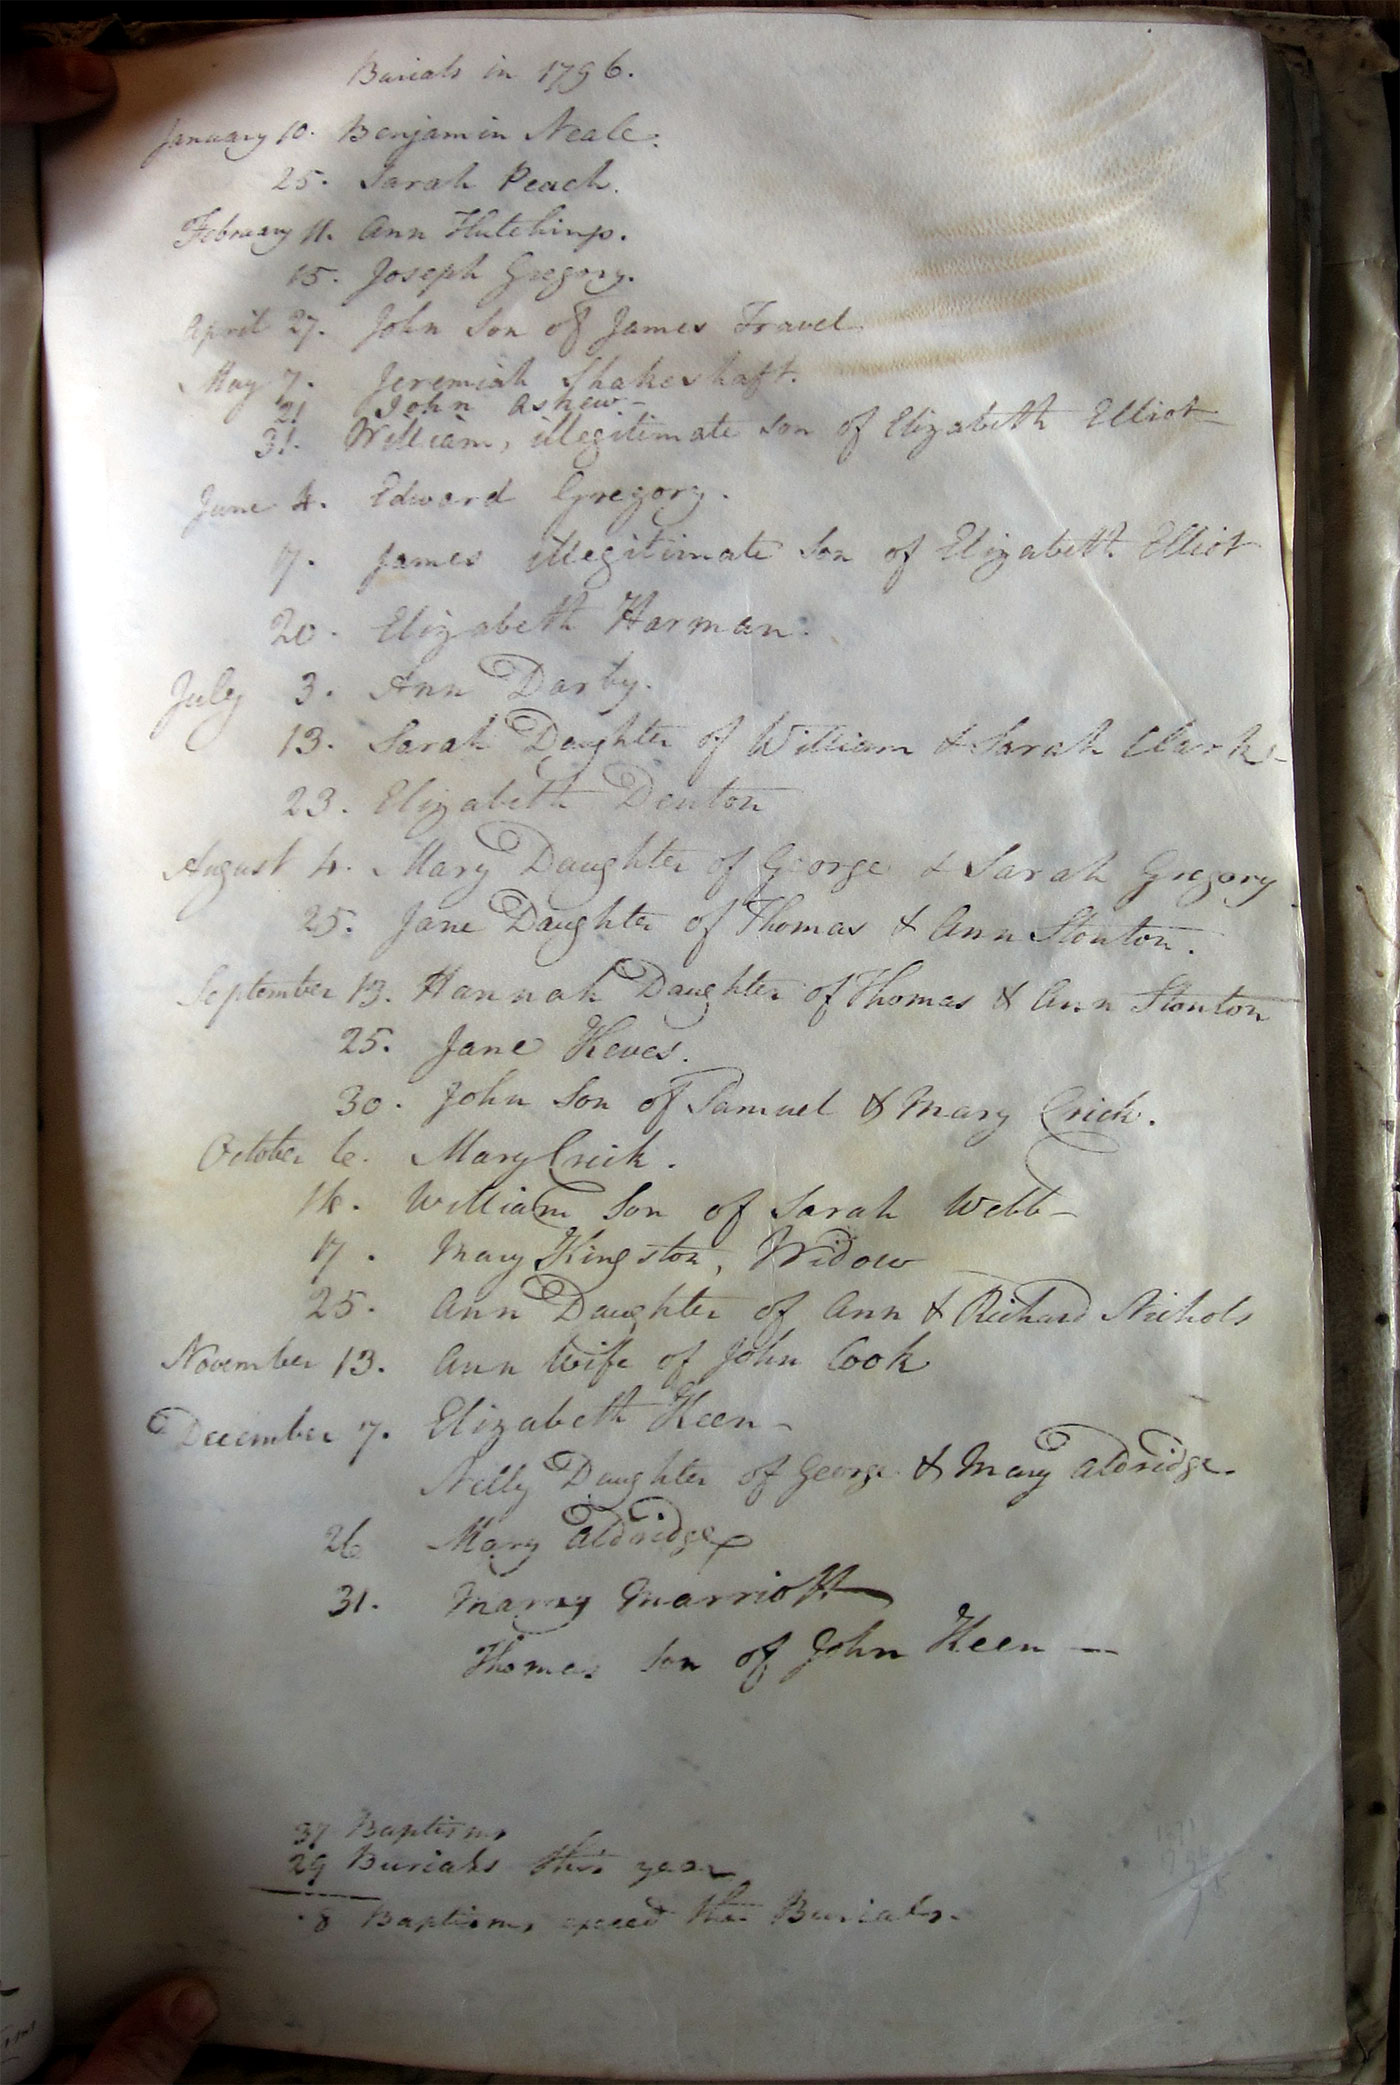 Burials in 1796.
January 10. Benjamin Neale.
25. Sarah Peach.
February 11. Ann Hutchings.
15. Joseph Gregory.
April 27. John Son of James Travel
May 7. Jeremiah Shakeshaft.
21 John Askew-
31. William, illegitimate son of Elizabeth Elliot
June 4. Edward Gregory.
17. James illegitimate Son of Elizabeth Elliot
20. Elizabeth Harman.
July 3. Ann Darby.
13. Sarah Daughter of William & Sarah Clark-
23. Elizabeth Denton
August 4. Mary Daughter of George & Sarah Gregory
25. Jane Daughter of Thomas & Ann Stonton.
September 13. Hannah Daughter of Thomas & Ann Stonton
25. Jane
30. John Son of Samuel & Mary Crick.
October 6. Mary Crick.
14. William Son of Sarah Webb-
17. Mary Kingston, Widow
25. Ann Daughter of Ann & Richard Nichols
November 13. Ann Wife of John Cook
December 7. Elizabeth Keen-
Nelly Daughter of George & Mary Aldridge.
26 Mary Aldridge
31. Mary Marriott
Thomas son of John Keen -
37 Baptisms
29 Burials this year
8 Baptisms exceed the Burials.